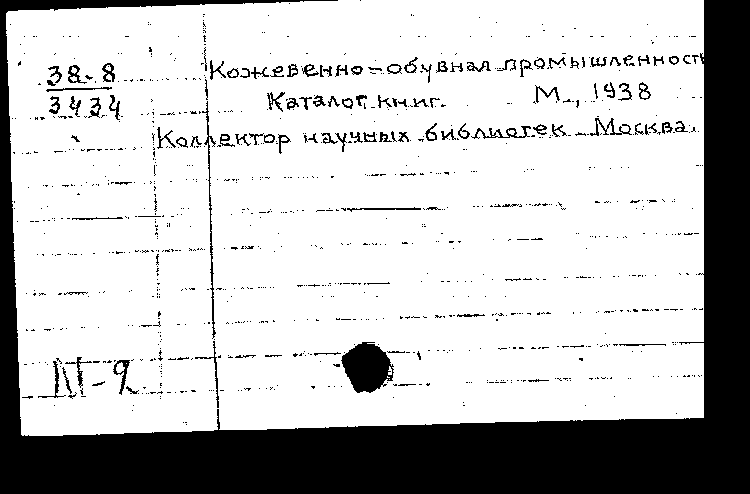 38-8 Кожевенно-обувная промышленность
3434 Каталог книг. М., 1938
Коллектор научных библиотек Москва.
III-2